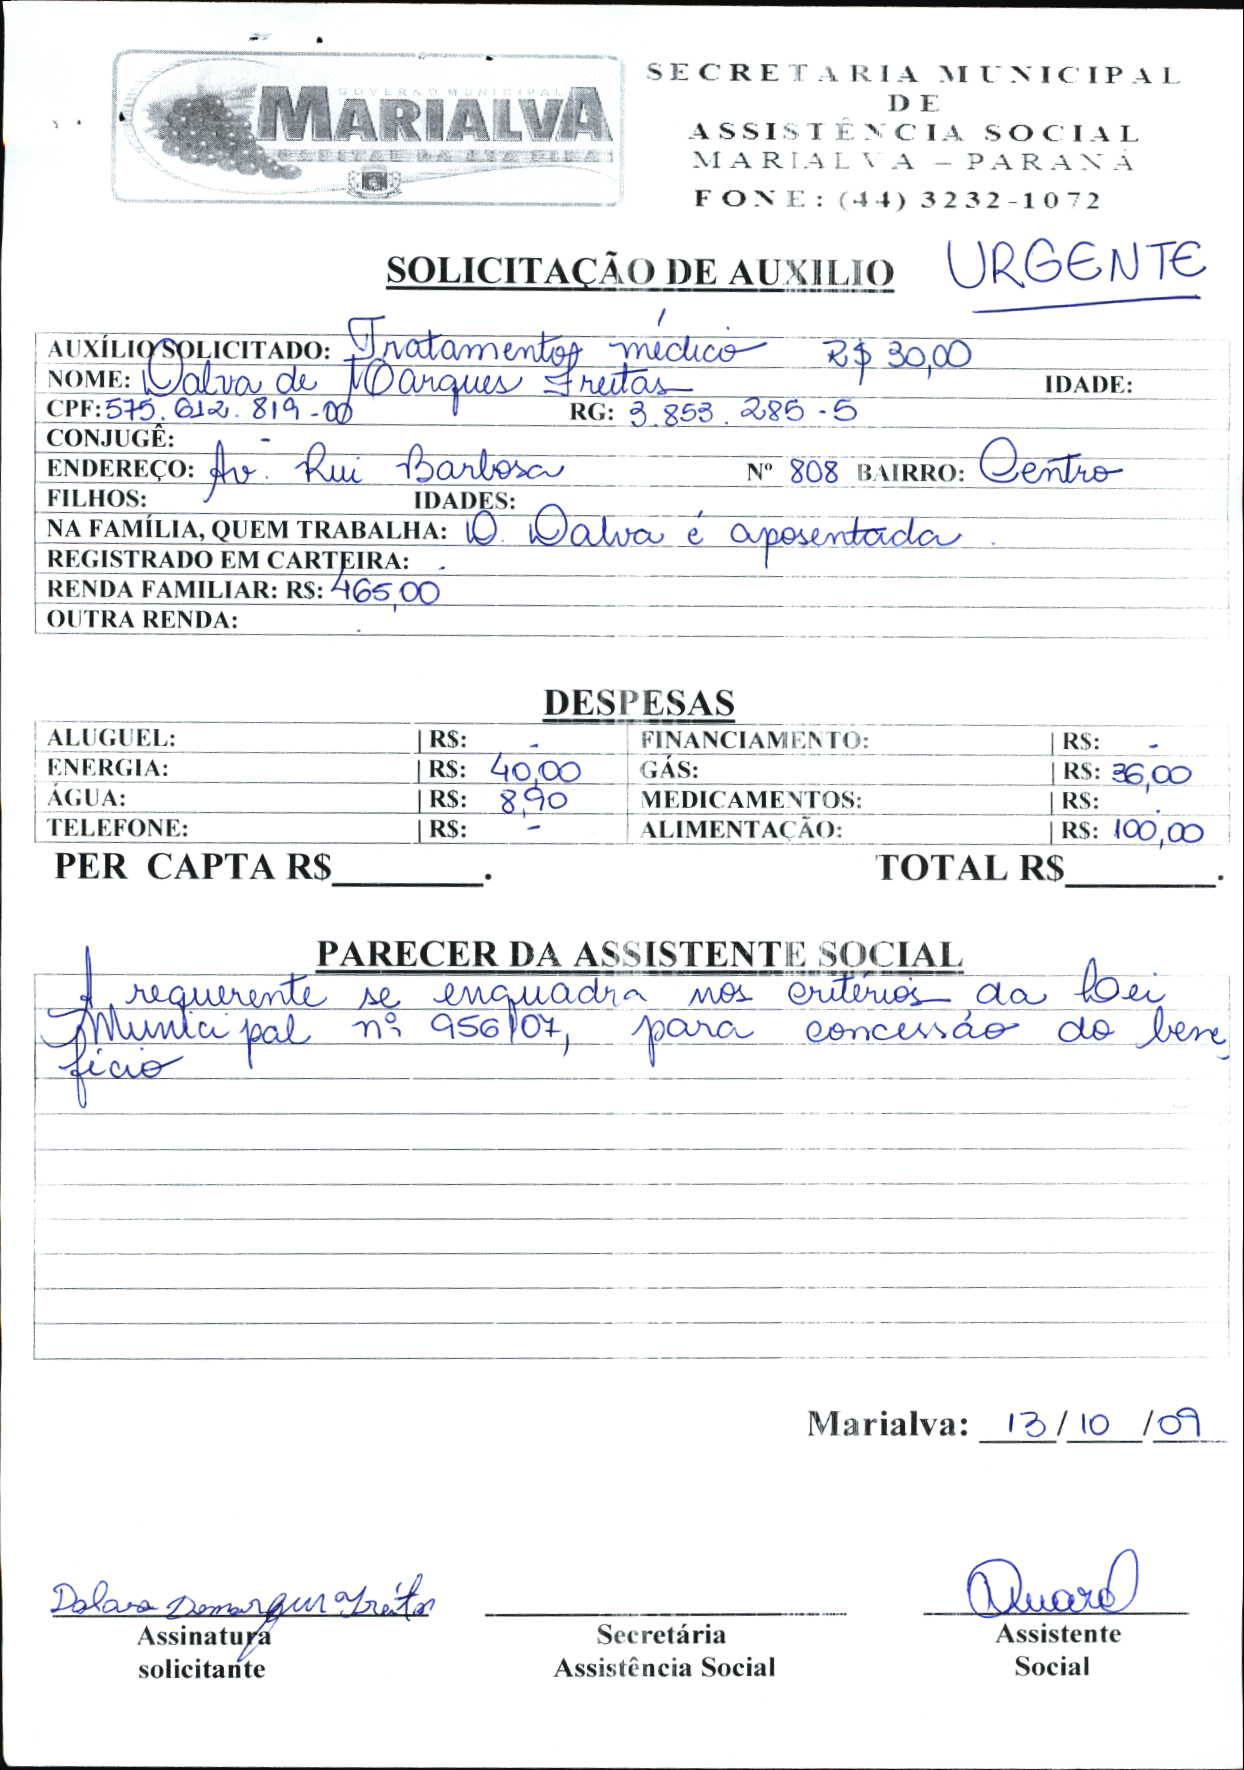 GOVERNO MUNICIPAL
MARIALVA
CAPITAL DA UVA FINA
SECRETARIA MUNICIPAL
DE
ASSISTÊNCIA SOCIAL
MARIALVA – PARANÁ
FONE: (44) 3232-1072
SOLICITAÇÃO DE AUXILIO URGENTE
AUXÍLIO SOLICITADO: Tratamento médico R$ 30,00
NOME: Dalva de Marques Freitas IDADE:
CPF: 575.612.819-00 RG: 3.853.285-5
CONJUGÊ: -
ENDEREÇO: Av. Rui Barbosa Nº 808 BAIRRO: Centro
FILHOS: IDADES:
NA FAMÍLIA, QUEM TRABALHA: D. Dalva é aposentada.
REGISTRADO EM CARTEIRA: -
RENDA FAMILIAR: R$: 465,00
OUTRA RENDA:
DESPESAS
ALUGUEL: | R$: - FINANCIAMENTO: | R$: -
ENERGIA: | R$: 40,00 GÁS: | R$: 36,00
ÁGUA: | R$: 8,90 MEDICAMENTOS: | R$: .
TELEFONE: | R$: - ALIMENTAÇÃO: | R$: 100,00
PER CAPTA R$________. TOTAL R$________.
PARECER DA ASSISTENTE SOCIAL
A requerente se enquadra nos critérios da Lei
Municipal nº 956/07, para concessão do bene
fício
Marialva: 13/10/09
Assinatura Secretária Assistente
solicitante Assistência Social Social